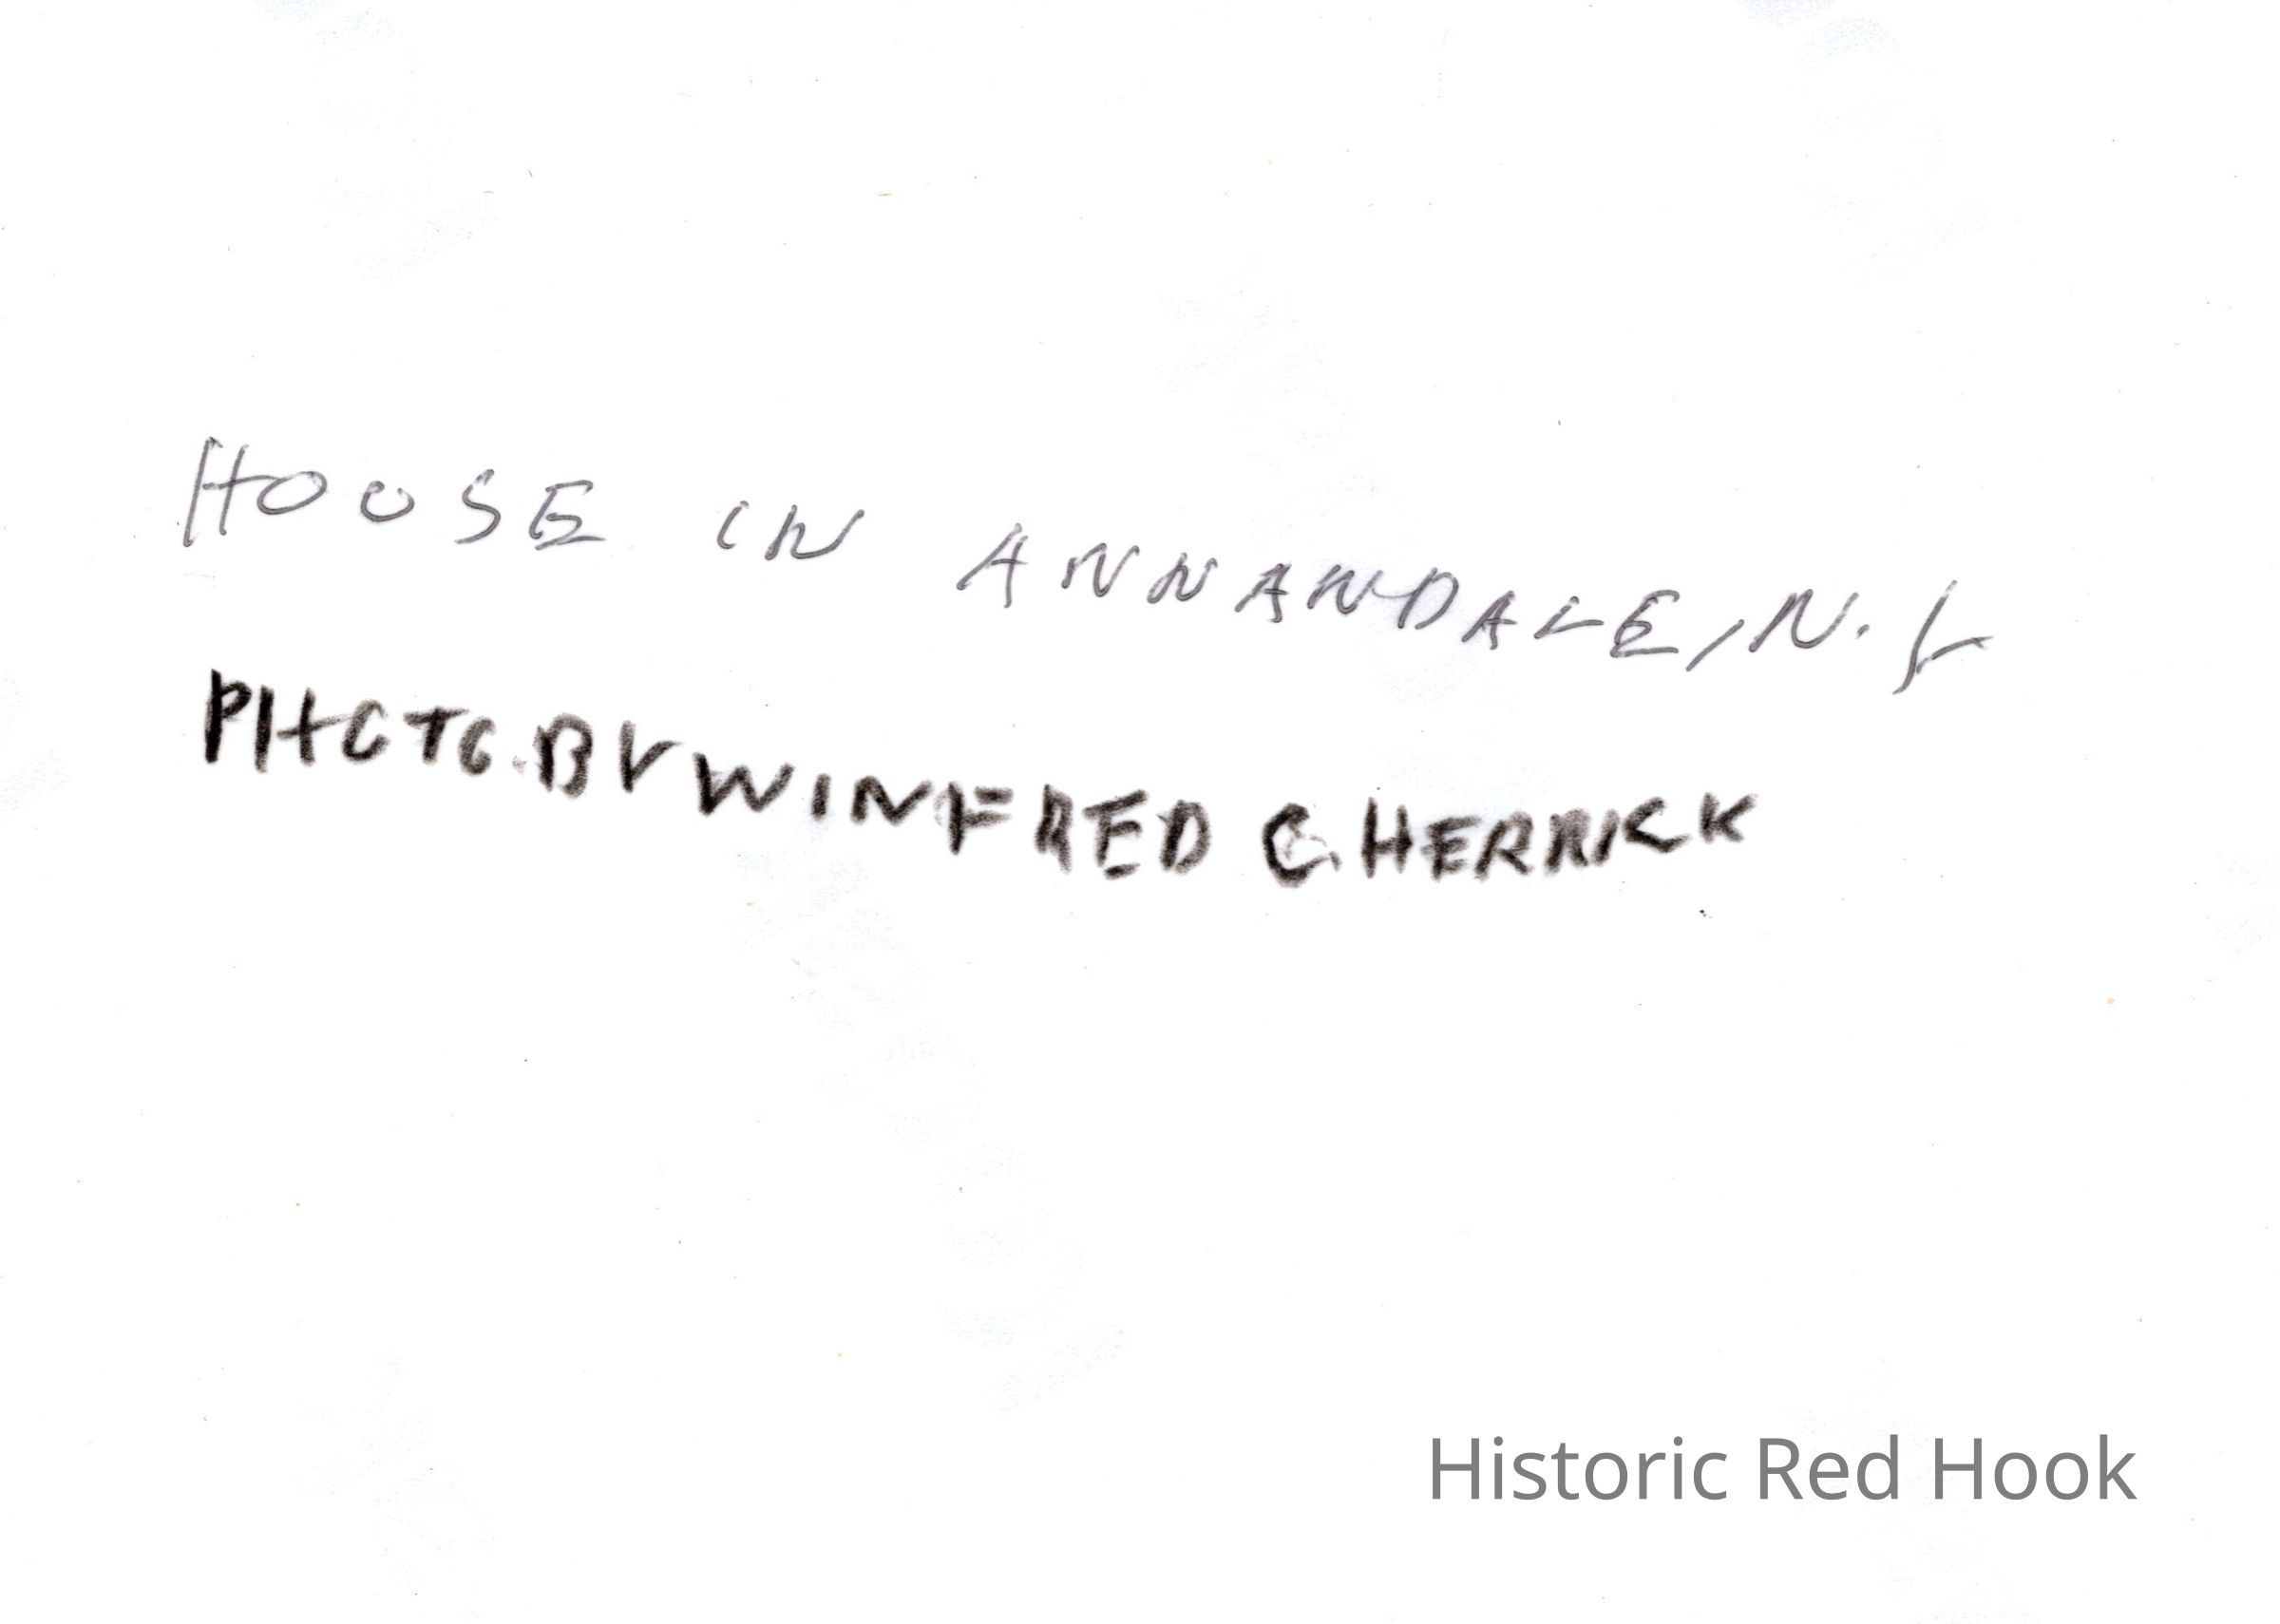 HOUSE IN ANNANDALE, N.Y
PHOTO BY WINFRED C. HERRICK
Historic Red Hook